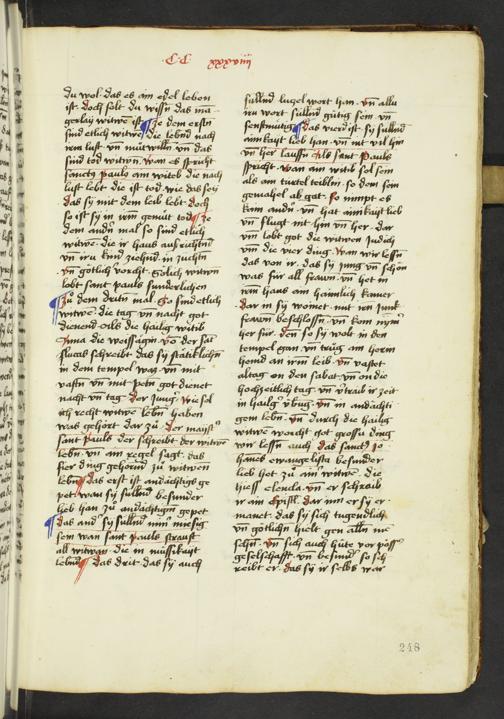 CC xxxviiij
du wol das es am edel leben
ist doch solt du wissn das ma
gerlaÿ witwe ist Ze dem erstn
sind etlich witwe die lebnd nach
irm lust vn mutwilln vn das
sind tod witwn wan es spricht
sanctg pauls ain witeb die nach
lust lebt die ist tod wie das seÿ
das sÿ mit dem leib lebt doch
so ist sÿ in irm gemüt tod Ze
dem andn mal so sind etlich
witwe die ir haus aufrichtnd
vn irw kind ziehnd in zuchtn
vn götlich vorcht Sölich witwn
lobt sant pauls sunderlichen
Zu dem dritn mal so sind etlich
witwe die tag vn nacht got
dienend Als die hailig witib
Anna die weissagin vo der sat
lucas schreibt das sÿ stätiklichn
in dem tempel was vn mit
vastn vn mit petn got dienet
nacht vn tag der Jung wie sol
ich recht witwe lebn haben
was gehört dar zu der maystr
sant Pauls der schreibt der witwe
lebn vn ain regel sagt das
fier ding gehörnd zu witwen
lebn das erst ist andächtigs ge
pet wan sÿ sullnd besunder
lieb han zu andächtigm gepet
das and sÿ sullnd nim müesig
sein wan sant pauls straft
all witwan die in müssikayt
lebnd das drit das sÿ auch
sullnd lugel wort han vn allu
iru wort sullnd gütig sein vn
senftmütig das vierd ist sÿ sullnd
ainikayt lieb han vn nit vil hin
vn her lauffn Als sant Pauls
spricht wan ain witib sol sein
als ain turtel teiblin so dem sein
gemahel ab gat so nimpt es
kain andn vn hat ainikayt lieb
vn flugt nit hin vn her dar
vm lobt got die witwen Judich
vm die vier ding wan wir lesen
das von ir das sÿ jung vn schön
was für all frawn vn het in
irm haus ain haimlich kamer
dar in sÿ wonet mit irn junk
frawn beschlossn vn kom nymr
her für den so sÿ wolt in den
tempel gan vn trug ain herin
hemd an irem leib vn vastet
altag on den sabat vn on die
hochzeitlich tag vn vtraib ir zeit
in hailgr vbug vn in andächti
gem lebn vn durch die hailig
witwe worcht got grossu ding
wir lessn auch das sanctg Jo
hanes ewangelista besunder
lieb het zu ainr witwe die
hiess elenda vn er schraib
ir ain Epistl dar inn er sÿ er
manet das sÿ sich tugendlich
vn götlichn hielt gen alln me
schn vn sich auch hüte vor pössr
geselschafft vn besundr so sch
reibt er das sÿ ir selbs war
248